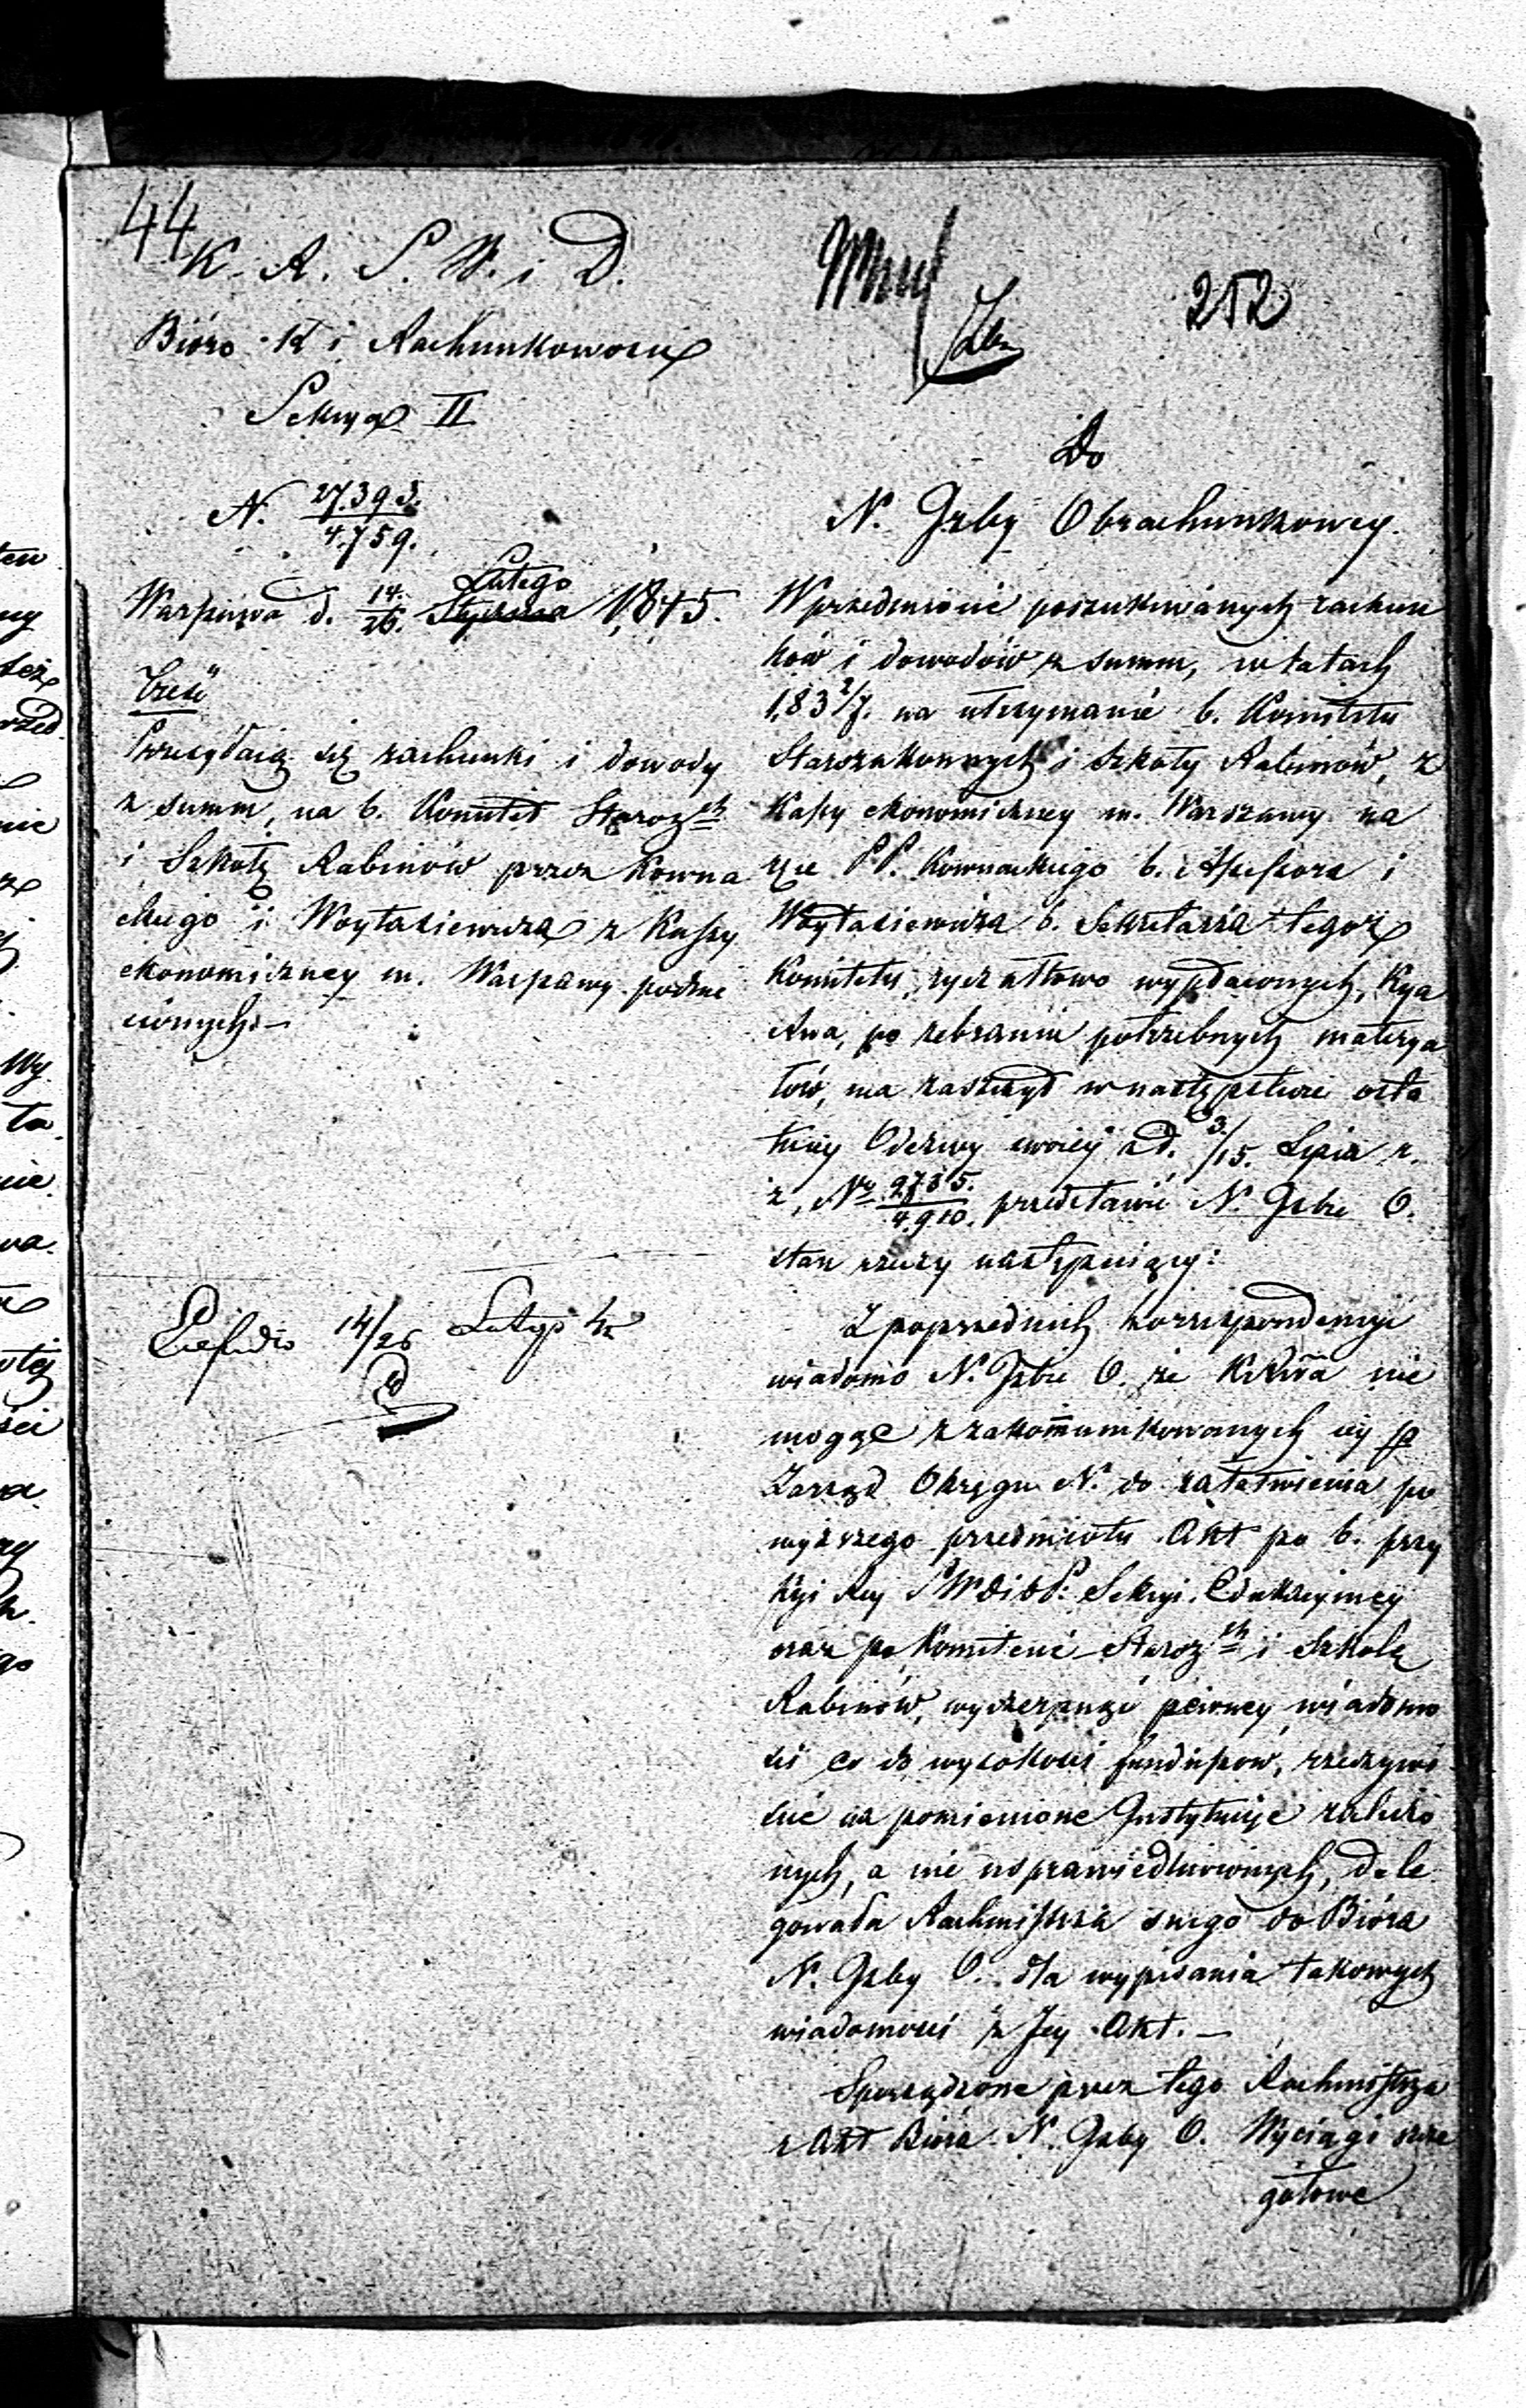 44
K. R. S. W. i D.
Bióro K i Rachunkowości
Sekcya II
N. 27.393. / 4.759.
Warszawa d. 14./26. Lutego Stycznia 1,845.
Treść
Przesyłaią się rachunki i dowody
z summ, na b. Komitet Staroz ch
i Szkołę Rabinów przez Kowna
ckiego i Woytasiewicza z Kassy
ekonomiczney m. Warszawy podnie
sionych.
14/26 Lutego
252
Do
N. Izby Obrachunkowey.
W przedmiocie poszukiwanych rachun
ków i dowodów z summ, w latach
1,83 2/7. na utrzymanie b. Komitetu
Starozakonnych i Szkoły Rabinów, z
Kassy ekonomiczney m. Warszawy na
ręce P.P. Kownackiego b. Assessora i
Woytasiewicza b. Sekretarza tegoż
Komitetu, ryczałtowo wypłaconych,
po zebraniu potrzebnych materya
łów, ma zaszczyt w następstwie osta
tniey Odezwy swoiey z d. 3./15. Lipca r.
z, No 2735. / 4.910. przedstawić N. Izbie O.
stan rzeczy następuiący:
Z poprzednich korrespondencyi
wiadomo N. Izbie O. że nie
mogąc z zakommunikowanych iey
Zarząd Okręgu N. do załatwienia po
wyższego przedmiotu Akt po b. przy
Sekcyi Edukacyiney
oraz po Komitecie Staroz ch i Szkole
Rabinów, wyczerpnąć pewney wiadomo
ści co do wysokości funduszów, rzeczywi
ście na pomienione Instytucje zaliczo
nych, a nie usprawiedliwionych, dele
gowała Rachmistrza swego do Bióra
N. Izby O. dla wypisania takowych
wiadomości z Jey Akt. —
Sporządzone przez tego Rachmistrza
z Akt Bióra N. Izby O. Wyciągi szcze
gółowe